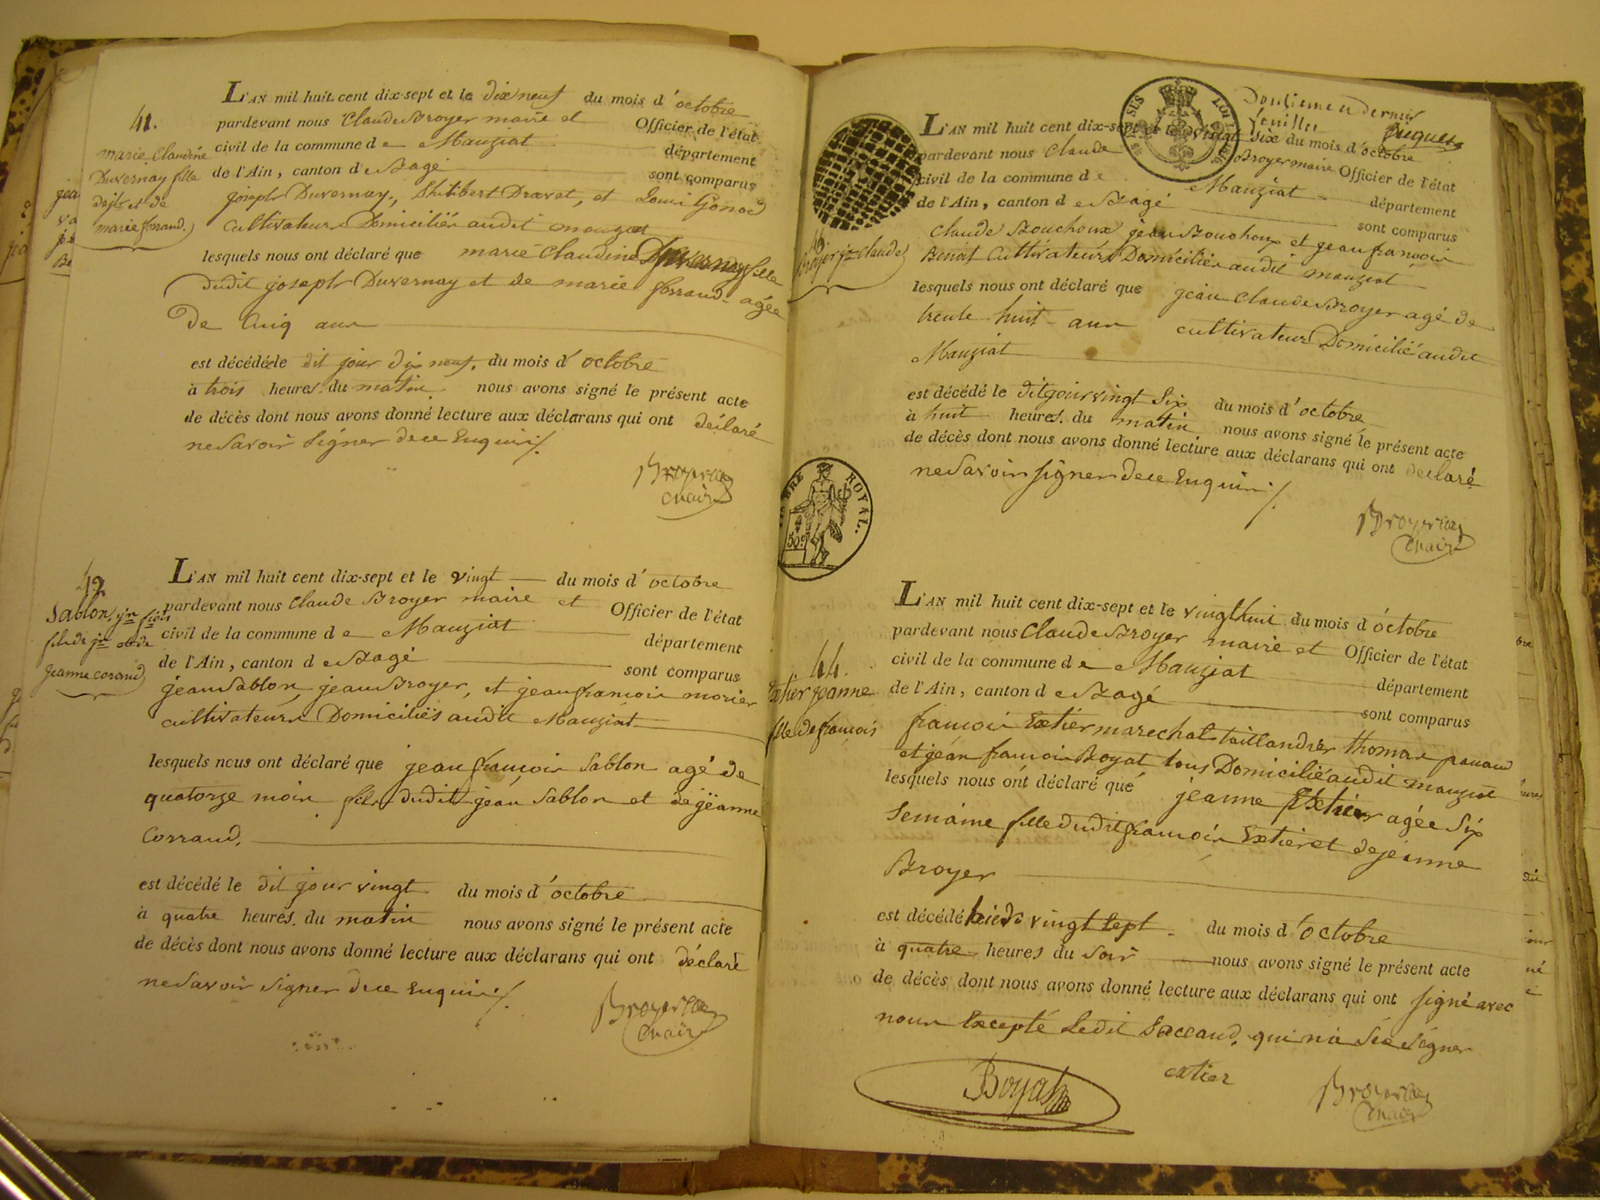 41.
marie Claudine
Duvernay fille
de js et de
marie ferrand.
L'AN mil huit cent dix-sept et le dix neuf du mois d'octobre
pardevant nous Claude Broyer maire et Officier de l'état
civil de la commune de Mauziat département
de l'Ain, canton de Bagé sont comparus
joseph Duvernay, Philibert Dravet, et Louis Gonod
cultivateurs Domiciliés audit mauziat
lesquels nous ont déclaré que marie Claudine Duvernay fille
dudit joseph Duvernay et de marie ferrand agée
De Cinq ans
est décédéele dit jour dix neuf. du mois d'octobre
à trois heures du matin. nous avons signé le présent acte
de décès dont nous avons donné lecture aux déclarans qui ont déclaré
ne Savoir Signer de ce Enquis ./.
Broyer
maire
42
Sablon jn fçois
fils de jn et de
jeanne corand
L'AN mil huit cent dix-sept et le vingt du mois d'octobre
pardevant nous Claude Broyer maire et Officier de l'état
civil de la commune de Mauziat département
de l'Ain, canton de Bagé sont comparus
jean Sablon, jean Broyer, et jean françois morier
cultivateurs Domiciliés audit Mauziat
lesquels nous ont déclaré que jean françois Sablon agé de
quatorze mois fils dudit jean Sablon et de jeanne
Corraud.
est décédé le dit jour vingt du mois d'octobre
à quatre heures du matin nous avons signé le présent acte
de décès dont nous avons donné lecture aux déclarans qui ont déclaré
ne Savoir Signer de ce Enquis ./.
Broyer
maire
Douzieme et dernier
feuillet
L'AN mil huit cent dix-sept et le vingt Six du mois d'octobre
pardevant nous Claude Broyer maire Officier de l'état
civil de la commune de Mauziat département
de l'Ain, canton de Bagé sont comparus
Broyer jn Claude
Claude Bouchoux jean Bouchoux et jean francois
Benoit Cultivateurs Domiciliés audit mauziat
lesquels nous ont déclaré que jean Claude Broyer agé de
trente huit ans cultivateur Domicilié audit
Mauziat
est décédé le dit jour vingt Six du mois d'octobre
à huit heures du matin nous avons signé le présent acte
de décès dont nous avons donné lecture aux déclarans qui ont declaré
ne Savoir signer de ce Enquis ./.
Broyer
maire
TIMBRE ROYAL.
50c
44.
Extier jeanne
fille de françois
L'AN mil huit cent dix-sept et le vingthuit du mois d'octobre
pardevant nous Claude Broyer maire et Officier de l'état
civil de la commune de Mauziat département
de l'Ain, canton de Bagé sont comparus
francois Extier marechal taillandier thomas
et jean francois Boyat tous Domiciliés audit mauziat
lesquels nous ont déclaré que jeanne Extier agée Six
Semaine fille dudit francois Extier et de jeanne
Broyer
est décédé hier vingt Sept du mois d'octobre
à quatre heures du Soir nous avons signé le présent acte
de décès dont nous avons donné lecture aux déclarans qui ont signé avec
nous Excepté Ledit qui n'a Sçe Signer
extier
Boyat
Broyer
maire